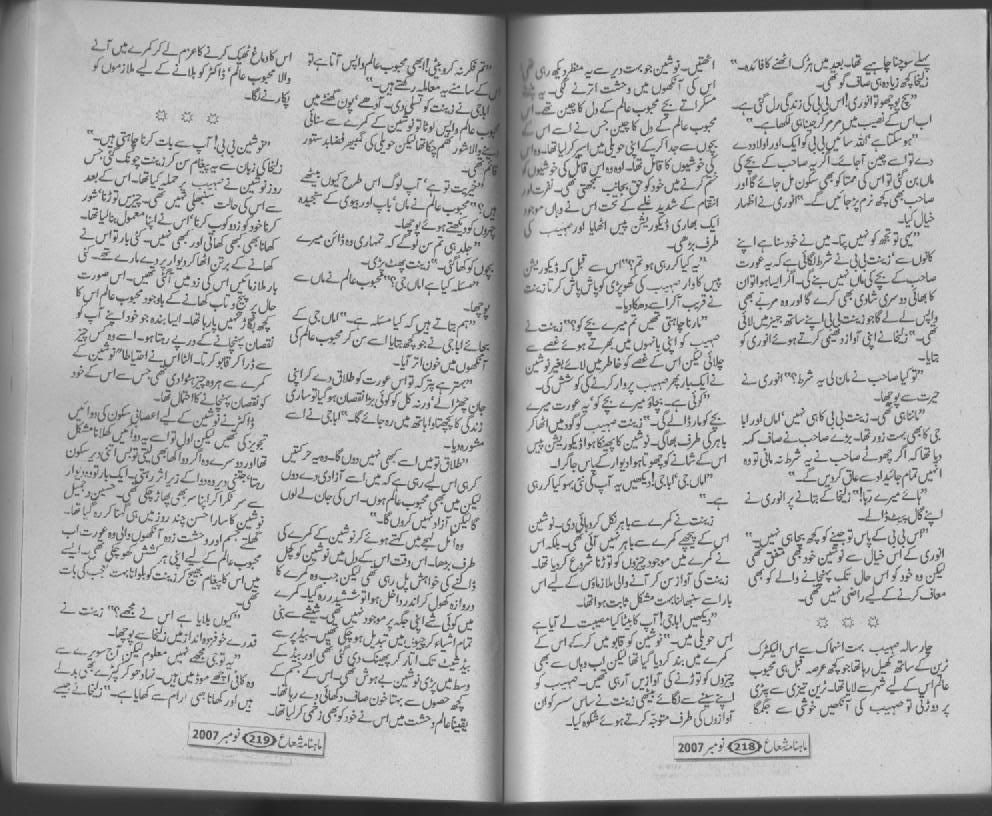 پہلے سوچنا چاہیے تھا۔ بعد میں ہڑک اٹھنے کا فائدہ۔"
زلیخا کچھ زیادہ ہی صاف گو تھی۔
"سچ پوچھو تو انوری! اس بی بی کی زندگی رل گئی ہے۔
اب اس کے نصیب میں مرمر کر جینا ہی لکھا ہے۔"
"ہو سکتا ہے' اللہ سائیں بی بی کو ایک اور اولاد دے
دے تو اسے چین آ جائے۔ اگر یہ صاحب کے بچے کی
ماں بن گئی تو اس کی ممتا کو بھی سکون مل جائے گا اور
صاحب بھی کچھ نرم پڑ جائیں گے۔" انوری نے اظہار
خیال کیا۔
"یہی تو تجھ کو نہیں پتا۔ میں نے خود سنا ہے اپنے
کانوں سے' زینت بی بی نے شرط لگائی ہے کہ یہ عورت
صاحب کے بچے کی ماں نہیں بنے گی۔ اگر ایسا ہوا تو ان
کا بھائی دوسری شادی بھی کرے گا اور وہ مربعے بھی
واپس لے لے گا جو زینت بی بی اپنے ساتھ جہیز میں لائی
تھی۔" زلیخا نے اپنی آواز دھیمی کرتے ہوئے انوری کو
بتایا۔
"تو کیا صاحب نے مان لی یہ شرط؟" انوری نے
حیرت سے پوچھا۔
"ماننا ہی تھی۔ زینت بی بی کا ہی نہیں' اماں اور ابا
جی کا بھی بہت زور تھا۔ بڑے صاحب نے صاف کہہ
دیا تھا کہ اگر چھوٹے صاحب نے یہ شرط نہ مانی تو وہ
انہیں تمام جائیداد سے عاق کر دیں گے۔"
"ہائے میرے ربا!" زلیخا کے بتانے پر انوری نے
اپنے گال پیٹ ڈالے۔
"اس بی بی کے پاس تو جینے کو کچھ بچا ہی نہیں۔"
انوری کے اس خیال سے نوشین خود بھی متفق تھی
لیکن وہ خود کو اس حال تک پہنچانے والے کو بھی
معاف کرنے کے لیے راضی نہیں تھی۔
چار سالہ صہیب بہت انہماک سے اس الیکٹرک
ٹرین کے ساتھ کھیل رہا تھا جو کچھ عرصہ قبل ہی محبوب
عالم اس کے لیے شہر سے لایا تھا۔ ٹرین تیزی سے پٹڑی
پر دوڑتی تو صہیب کی آنکھیں خوشی سے جگمگا
اٹھتیں۔ نوشین جو بہت دیر سے یہ منظر دیکھ رہی تھی
اس کی آنکھوں میں وحشت اترنے لگی۔ یہ
مسکراتے بچے محبوب عالم کے دل کا چین تھے۔ اس
محبوب عالم کے دل کا چین جس نے اسے اس کے
بچوں سے جدا کر کے اپنی حویلی میں اسیر کر لیا تھا۔ وہ اس
کی خوشیوں کا قاتل تھا۔ اور وہ اس قاتل کی خوشیوں کو
ختم کرنے میں خود کو حق بجانب سمجھتی تھی۔ نفرت اور
انتقام کے شدید غلبے کے تحت اس نے وہاں موجود
ایک بھاری ڈیکوریشن پیس اٹھایا اور صہیب کی
طرف بڑھی۔
"یہ کیا کر رہی ہو تم؟" اس سے قبل کہ ڈیکوریشن
پیس کا وار صہیب کی کھوپڑی کو پاش پاش کرتا زینت
نے قریب آ کر اسے دھکا دیا۔
"مارنا چاہتی تھیں تم میرے بچے کو؟" زینت نے
صہیب کو اپنی بانہوں میں بھرتے ہوئے غصے سے
چلائی لیکن اس کے غصے کو خاطر میں لائے بغیر نوشین
نے ایک بار پھر صہیب پر وار کرنے کی کوشش کی۔
"کوئی ہے۔ بچاؤ میرے بچے کو' یہ عورت میرے
بچے کو مار ڈالے گی۔" زینت صہیب کو گود میں اٹھا کر
باہر کی طرف بھاگی۔ نوشین کا پھینکا ہوا ڈیکوریشن پیس
اس کے شانے کو چھوتا ہوا دیوار کے پاس جا گرا۔
"اماں جی' ابا جی! دیکھیں یہ آپ کی نئی بہو کیا کر رہی
ہے۔"
زینت نے کمرے سے باہر نکل کر دہائی دی۔ نوشین
اس کے پیچھے کمرے سے باہر نہیں آئی تھی۔ بلکہ اس
نے کمرے میں موجود چیزوں کو توڑنا شروع کر دیا تھا۔
زینت کی آواز سن کر آنے والی ملازماؤں کے لیے اس
بار اسے سنبھالنا بہت مشکل ثابت ہوا تھا۔
"دیکھیں ابا جی! آپ کا بیٹا کیا مصیبت لے آیا ہے
اس حویلی میں۔" نوشین کو قابو میں کر کے اس کے
کمرے میں بند کر دیا گیا تھا لیکن اب وہاں سے بھی
چیزوں کو توڑنے کی آوازیں آ رہی تھیں۔ صہیب کو
اپنے سینے سے لگائے بیٹھی زینت نے ساس سسر کو ان
آوازوں کی طرف متوجہ کرتے ہوئے شکوہ کیا۔
ماہنامہ شعاع 218 نومبر 2007
"تم فکر نہ کرو بیٹی! ابھی محبوب عالم واپس آتا ہے تو
اس کے سامنے یہ معاملہ رکھتے ہیں۔"
ابا جی نے زینت کو تسلی دی۔ آدھے' پون گھنٹے میں
محبوب عالم واپس لوٹا تو نوشین کے کمرے سے سنائی
دینے والا شور تھم چکا تھا لیکن حویلی کی گمبھیر فضا بدستور
قائم تھی۔
"خیریت تو ہے' آپ لوگ اس طرح کیوں بیٹھے
ہیں؟" محبوب عالم نے ماں' باپ اور بیوی کے سنجیدہ
چہروں کو دیکھتے ہوئے پوچھا۔
"جلد ہی تم سن لو گے کہ تمہاری وہ ڈائن میرے
بچوں کو کھا گئی۔" زینت پھٹ پڑی۔
"مسئلہ کیا ہے اماں جی؟" محبوب عالم نے ماں سے
پوچھا۔
"ہم بتاتے ہیں کہ کیا مسئلہ ہے۔" اماں جی کے
بجائے ابا جی نے جو کچھ بتایا اسے سن کر محبوب عالم کی
آنکھوں میں خون اتر گیا۔
"بہتر ہے پتر کہ تو اس عورت کو طلاق دے کر اپنی
جان چھڑا لے' ورنہ کل کو کوئی بڑا نقصان ہو گیا تو ساری
زندگی کا پچھتاوا ہاتھ میں رہ جائے گا۔" ابا جی نے اسے
مشورہ دیا۔
"طلاق تو میں اسے کبھی نہیں دوں گا۔ وہ یہ حرکتیں
کر ہی اس لیے رہی ہے کہ میں اسے آزادی دے دوں
لیکن میں بھی محبوب عالم ہوں۔ اس کی جان لے لوں
گا لیکن آزاد نہیں کروں گا۔"
وہ اٹل لہجے میں کہتے ہوئے نوشین کے کمرے کی
طرف بڑھا۔ اس وقت اس کے دل میں نوشین کو کچل
ڈالنے کی خواہش پل رہی تھی لیکن جب وہ کمرے کا
دروازہ کھول کر اندر داخل ہوا تو ششدر رہ گیا۔ کمرے
میں کوئی شے اپنی جگہ پر موجود نہیں تھی۔ شیشے سے بنی
تمام اشیاء کرچیوں میں تبدیل ہو چکی تھیں۔ بیڈ پر سے
بیڈ شیٹ تک اتار کر پھینک دی گئی تھی اور بیڈ کے
وسط میں پڑی نوشین بے ہوش تھی۔ اس کے جسم کے
کچھ حصوں سے بہتا خون صاف دکھائی دے رہا تھا۔
یقیناً عالم وحشت میں اس نے خود کو بھی زخمی کر لیا تھا۔
اس کا دماغ ٹھیک کرنے کا عزم لے کر کمرے میں آنے
والا محبوب عالم' ڈاکٹر کو بلانے کے لیے ملازموں کو
پکارنے لگا۔
"نوشین بی بی! آپ سے بات کرنا چاہتی ہیں۔"
زلیخا کی زبان سے یہ پیغام سن کر زینت چونک گئی جس
روز نوشین نے صہیب پر حملہ کیا تھا۔ اس کے بعد
سے اس کی حالت سنبھلی نہیں تھی۔ چیزیں توڑنا' شور
کرنا خود کو زدوکوب کرنا' اس نے اپنا معمول بنا لیا تھا۔
کھانا بھی کبھی کھاتی اور کبھی نہیں۔ کئی بار تو اس نے
کھانے کے برتن اٹھا کر دیوار پر دے مارے تھے۔ کئی
بار ملازمائیں اس کی زد میں آ گئی تھیں۔ اس صورت
حال پر پیچ و تاب کھانے کے باوجود محبوب عالم اس کا
کچھ بگاڑ نہیں پا رہا تھا۔ ایسا بندہ جو خود اپنے آپ کو
نقصان پہنچانے کے درپے رہتا ہو۔ اسے وہ کس چیز
سے ڈرا کر قابو کرتا۔ الٹا اس نے احتیاطاً نوشین کے
کمرے سے ہر وہ چیز ہٹوا دی تھی جس سے اس کے خود
کو نقصان پہنچانے کا احتمال تھا۔
ڈاکٹر نے نوشین کے لیے اعصابی سکون کی دوائیں
تجویز کی تھیں لیکن اول تو اسے یہ دوائیں کھلانا مشکل
تھا اور دوسرے وہ اگر دوا کھا بھی لیتی تو بس اتنی دیر سکون
رہتا' جتنی دیر وہ دوا کے زیر اثر رہتی۔ ایک بار تو وہ دیوار
سے سر ٹکرا کر اپنا سر بھی پھاڑ چکی تھی۔ حسین و جمیل
نوشین کا سارا حسن چند روز میں ہی گہنا کر رہ گیا تھا۔
جسم اور وحشت زدہ آنکھوں والی وہ عورت اب
محبوب عالم کے لیے اپنی ہر کشش کھو چکی تھی۔ ایسے
میں اس کا پیغام بھیج کر زینت کو بلوانا بہت تعجب کی بات
تھی۔
"کیوں بلایا ہے اس نے مجھے؟" زینت نے
قدرے خوفزدہ انداز میں زلیخا سے پوچھا۔
"یہ تو بی بی مجھے نہیں معلوم لیکن آج سویرے سے
وہ کافی اچھے موڈ میں ہیں۔ نہا دھو کر کپڑے بھی بدلے
ہیں اور کھانا بھی آرام سے کھایا ہے۔" زلیخا نے جیسے
ماہنامہ شعاع 219 نومبر 2007